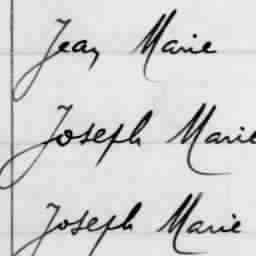 Jean Marie
Joseph Marie
Joseph Marie